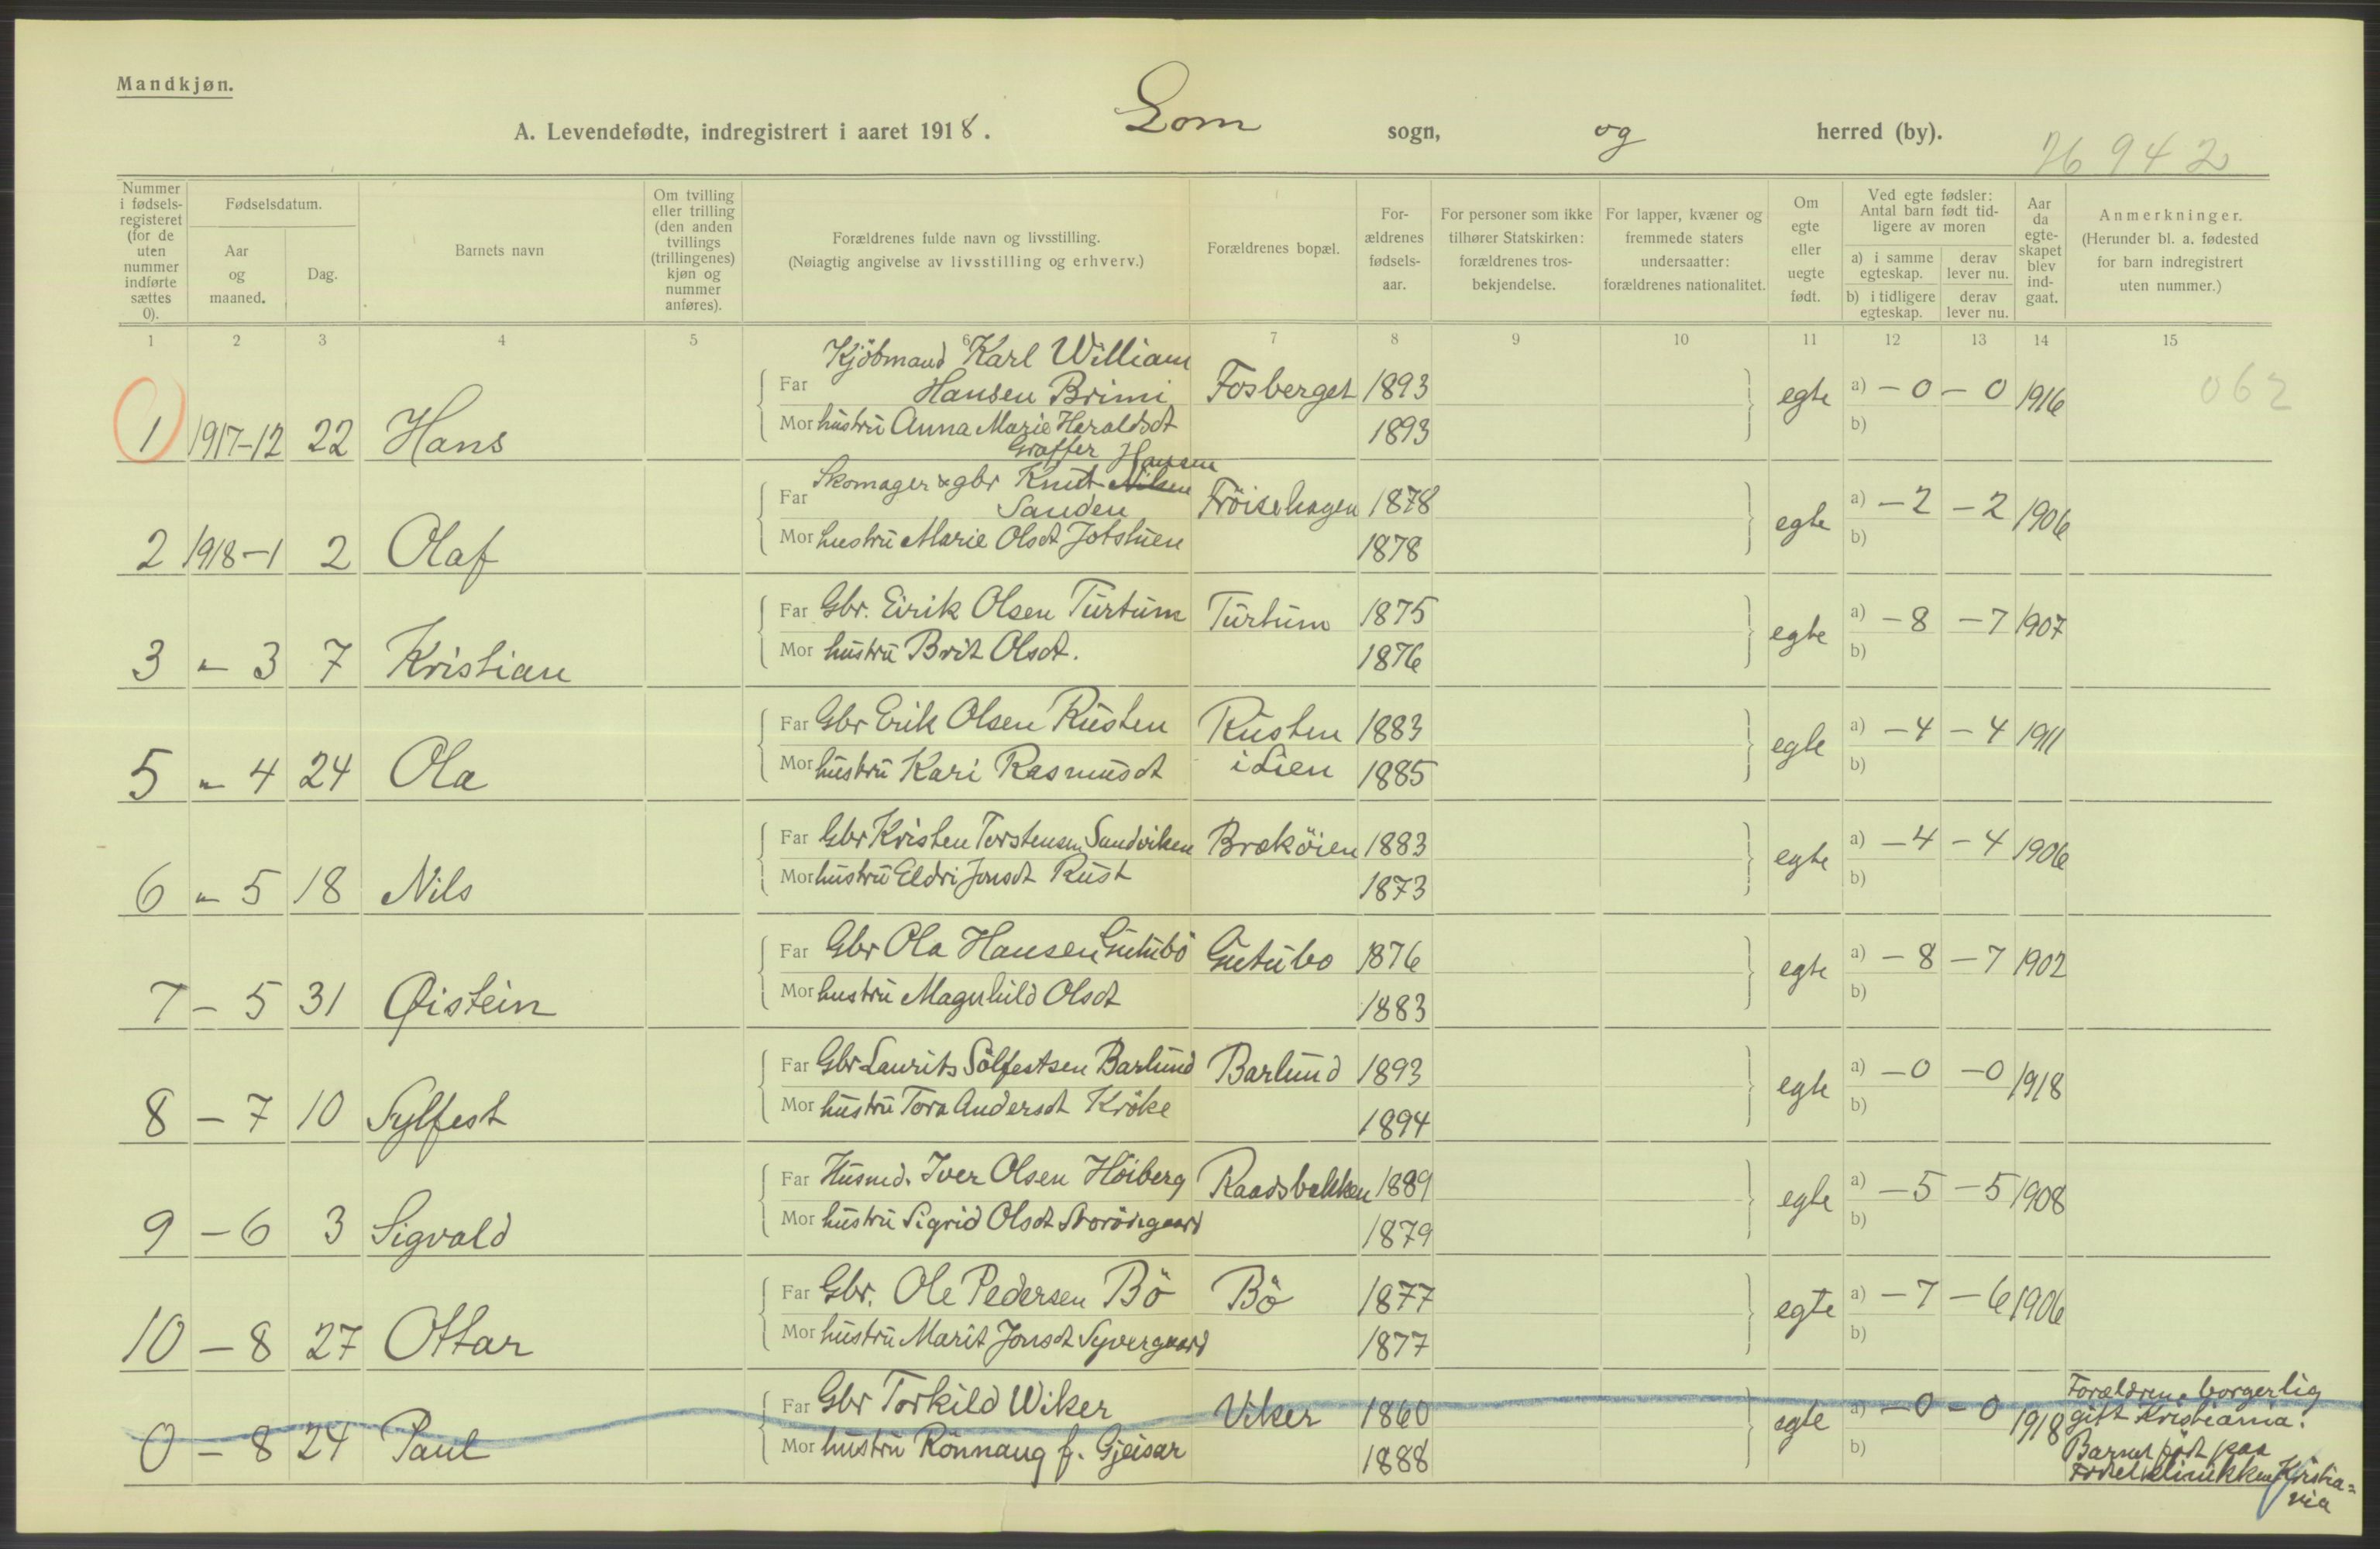 Mandkjøn.
A. Levendefødte, indregistrert i aaret 1918. Lom sogn, og herred (by).
76942
Nummer i fødsels-registeret (for de uten nummer indførte sættes 0).
Fødselsdatum.
Aar og maaned.
Dag.
Barnets navn
Om tvilling eller trilling (den anden tvillings (trillingenes) kjøn og nummer anføres).
Forældrenes fulde navn og livsstilling.
(Nøiagtig angivelse av livsstilling og erhverv.)
Forældrenes bopæl.
For-ældrenes fødsels-aar.
For personer som ikke tilhører Statskirken: forældrenes tros-bekjendelse.
For lapper, kvæner og fremmede staters undersaatter: forældrenes nationalitet.
Om egte eller uegte født.
Ved egte fødsler: Antal barn født tid-ligere av moren
a) i samme egteskap.
derav lever nu.
b) i tidligere egteskap.
derav lever nu.
Aar da egte-skapet blev ind-gaat.
Anmerkninger.
(Herunder bl. a. fødested for barn indregistrert uten nummer.)
1 2 3 4 5 6 7 8 9 10 11 12 13 14 15
Kjöbmand Karl William
Far Hansen Brimi Fosberget 1893 egte a) - 0 - 0 1916 062
1 1917-12 22 Hans
Mor hustru Anna Marie Haraldsdt 1893 b)
Graffer
Hansen
Skomager & gbr Knut Nilsen
Far Sanden Fröisehagen 1878 egte a) - 2 - 2 1906
2 1918-1 2 Olaf
Mor hustru Marie Olsdt Jotstuen 1878 b)
Far Gbr. Eirik Olsen Turtum Turtum 1875 egte a) - 8 - 7 1907
3 " 3 7 Kristian
Mor hustru Brit Olsdt. 1876 b)
Far Gbr Erik Olsen Rusten Rusten 1883 egte a) - 4 - 4 1911
5 " 4 24 Ola
Mor hustru Kari Rasmusdt i Lien 1885 b)
Far Gbr Kristen Torstensen Sandviken Bræköien 1883 egte a) - 4 - 4 1906
6 " 5 18 Nils
Mor hustru Eldri Jonsdt Rust 1873 b)
Far Gbr Ola Hansen Gutubö Gutubo 1876 egte a) - 8 - 7 1902
7 - 5 31 Øistein
Mor hustru Magnhild Olsdt 1883 b)
Far Gbr Laurits Sölfestsen Barlund Barlund 1893 egte a) - 0 - 0 1918
8 - 7 10 Sylfest
Mor hustru Tora Andersdt Kröke 1894 b)
Far Husmd. Iver Olsen Höiberg Raadsbakken 1889 egte a) - 5 - 5 1908
9 - 6 3 Sigvald
Mor hustru Sigrid Olsdt 1879 b)
Far Gbr. Ole Pedersen Bö Bö 1877 egte a) - 7 - 6 1906
10 - 8 27 Ottar
Mor hustru Marit Jonsdt Syvergaard 1877 b)
Far Gbr Torkild Wiker Viker 1860 egte a) - 0 - 0 1918
0 - 8 24 Paul
Mor hustru Rönnaug f. Gjeisar 1888 b)
Forældrene borgerlig
gift Kristiania.
Barnet født paa
Födselsklinikken Kristia=
nia